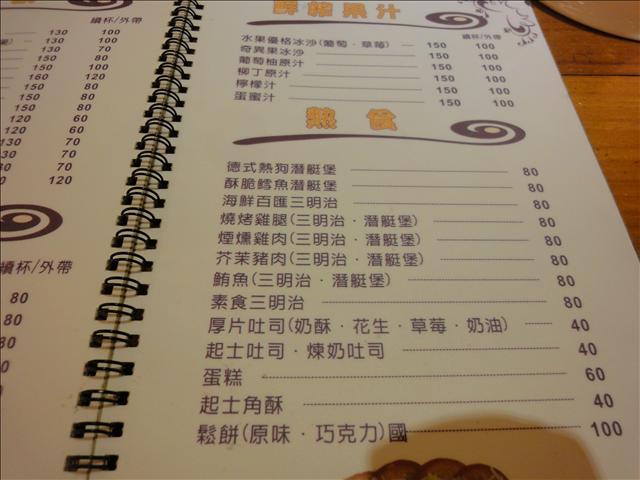 續杯/外帶
130 100
130 70
150 80
150 100
160 120
150 80
150 80
120 60
120 60
130 70
130 70
80
120
續杯/外帶
80
80
80
80
80
鮮榨果汁
續杯/外帶
水果優格冰沙(葡萄．草莓) 150 100
奇異果冰沙 150 100
葡萄柚原汁 150 100
柳丁原汁 150 100
檸檬汁 150 100
蛋蜜汁 150 100
熱食
德式熱狗潛艇堡 80
酥脆鱈魚潛艇堡 80
海鮮百匯三明治 80
燒烤雞腿(三明治．潛艇堡) 80
煙燻雞肉(三明治．潛艇堡) 80
芥茉豬肉(三明治．潛艇堡) 80
鮪魚(三明治．潛艇堡) 80
素食三明治 80
厚片吐司(奶酥．花生．草莓．奶油) 40
起士吐司．煉奶吐司 40
蛋糕 60
起士角酥 40
鬆餅(原味．巧克力)國 100